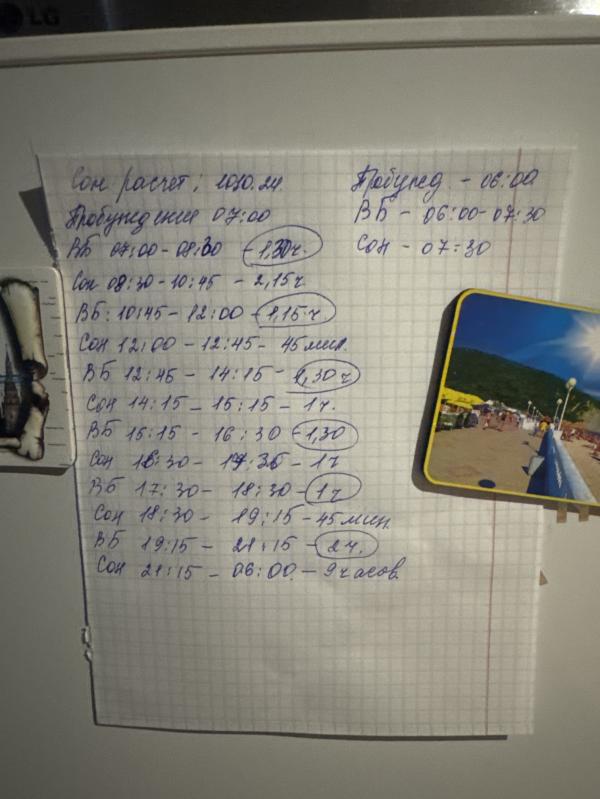 LG
Сон расчет; 10.10.24
Пробуждение 07:00
ВБ 07:00 - 08:30 - 1,30ч.
Сон 08:30 - 10:45 - 2,15ч
ВБ: 10:45 - 12:00 - 1,15 ч
Сон 12:00 - 12:45 - 45 мин.
ВБ 12:45 - 14:15 - 1,30 ч
Сон 14:15 - 15:15 - 1ч.
ВБ 15:15 - 16:30 - 1,30
Сон 16:30 - 17:35 - 1ч
ВБ 17:30 - 18:30 - 1ч
Сон 18:30 - 19:15 - 45 мин.
ВБ 19:15 - 21:15 - 2ч.
Сон 21:15 - 06:00 - 9 часов
Пробужд - 06:00
ВБ - 06:00 - 07:30
Сон - 07:30